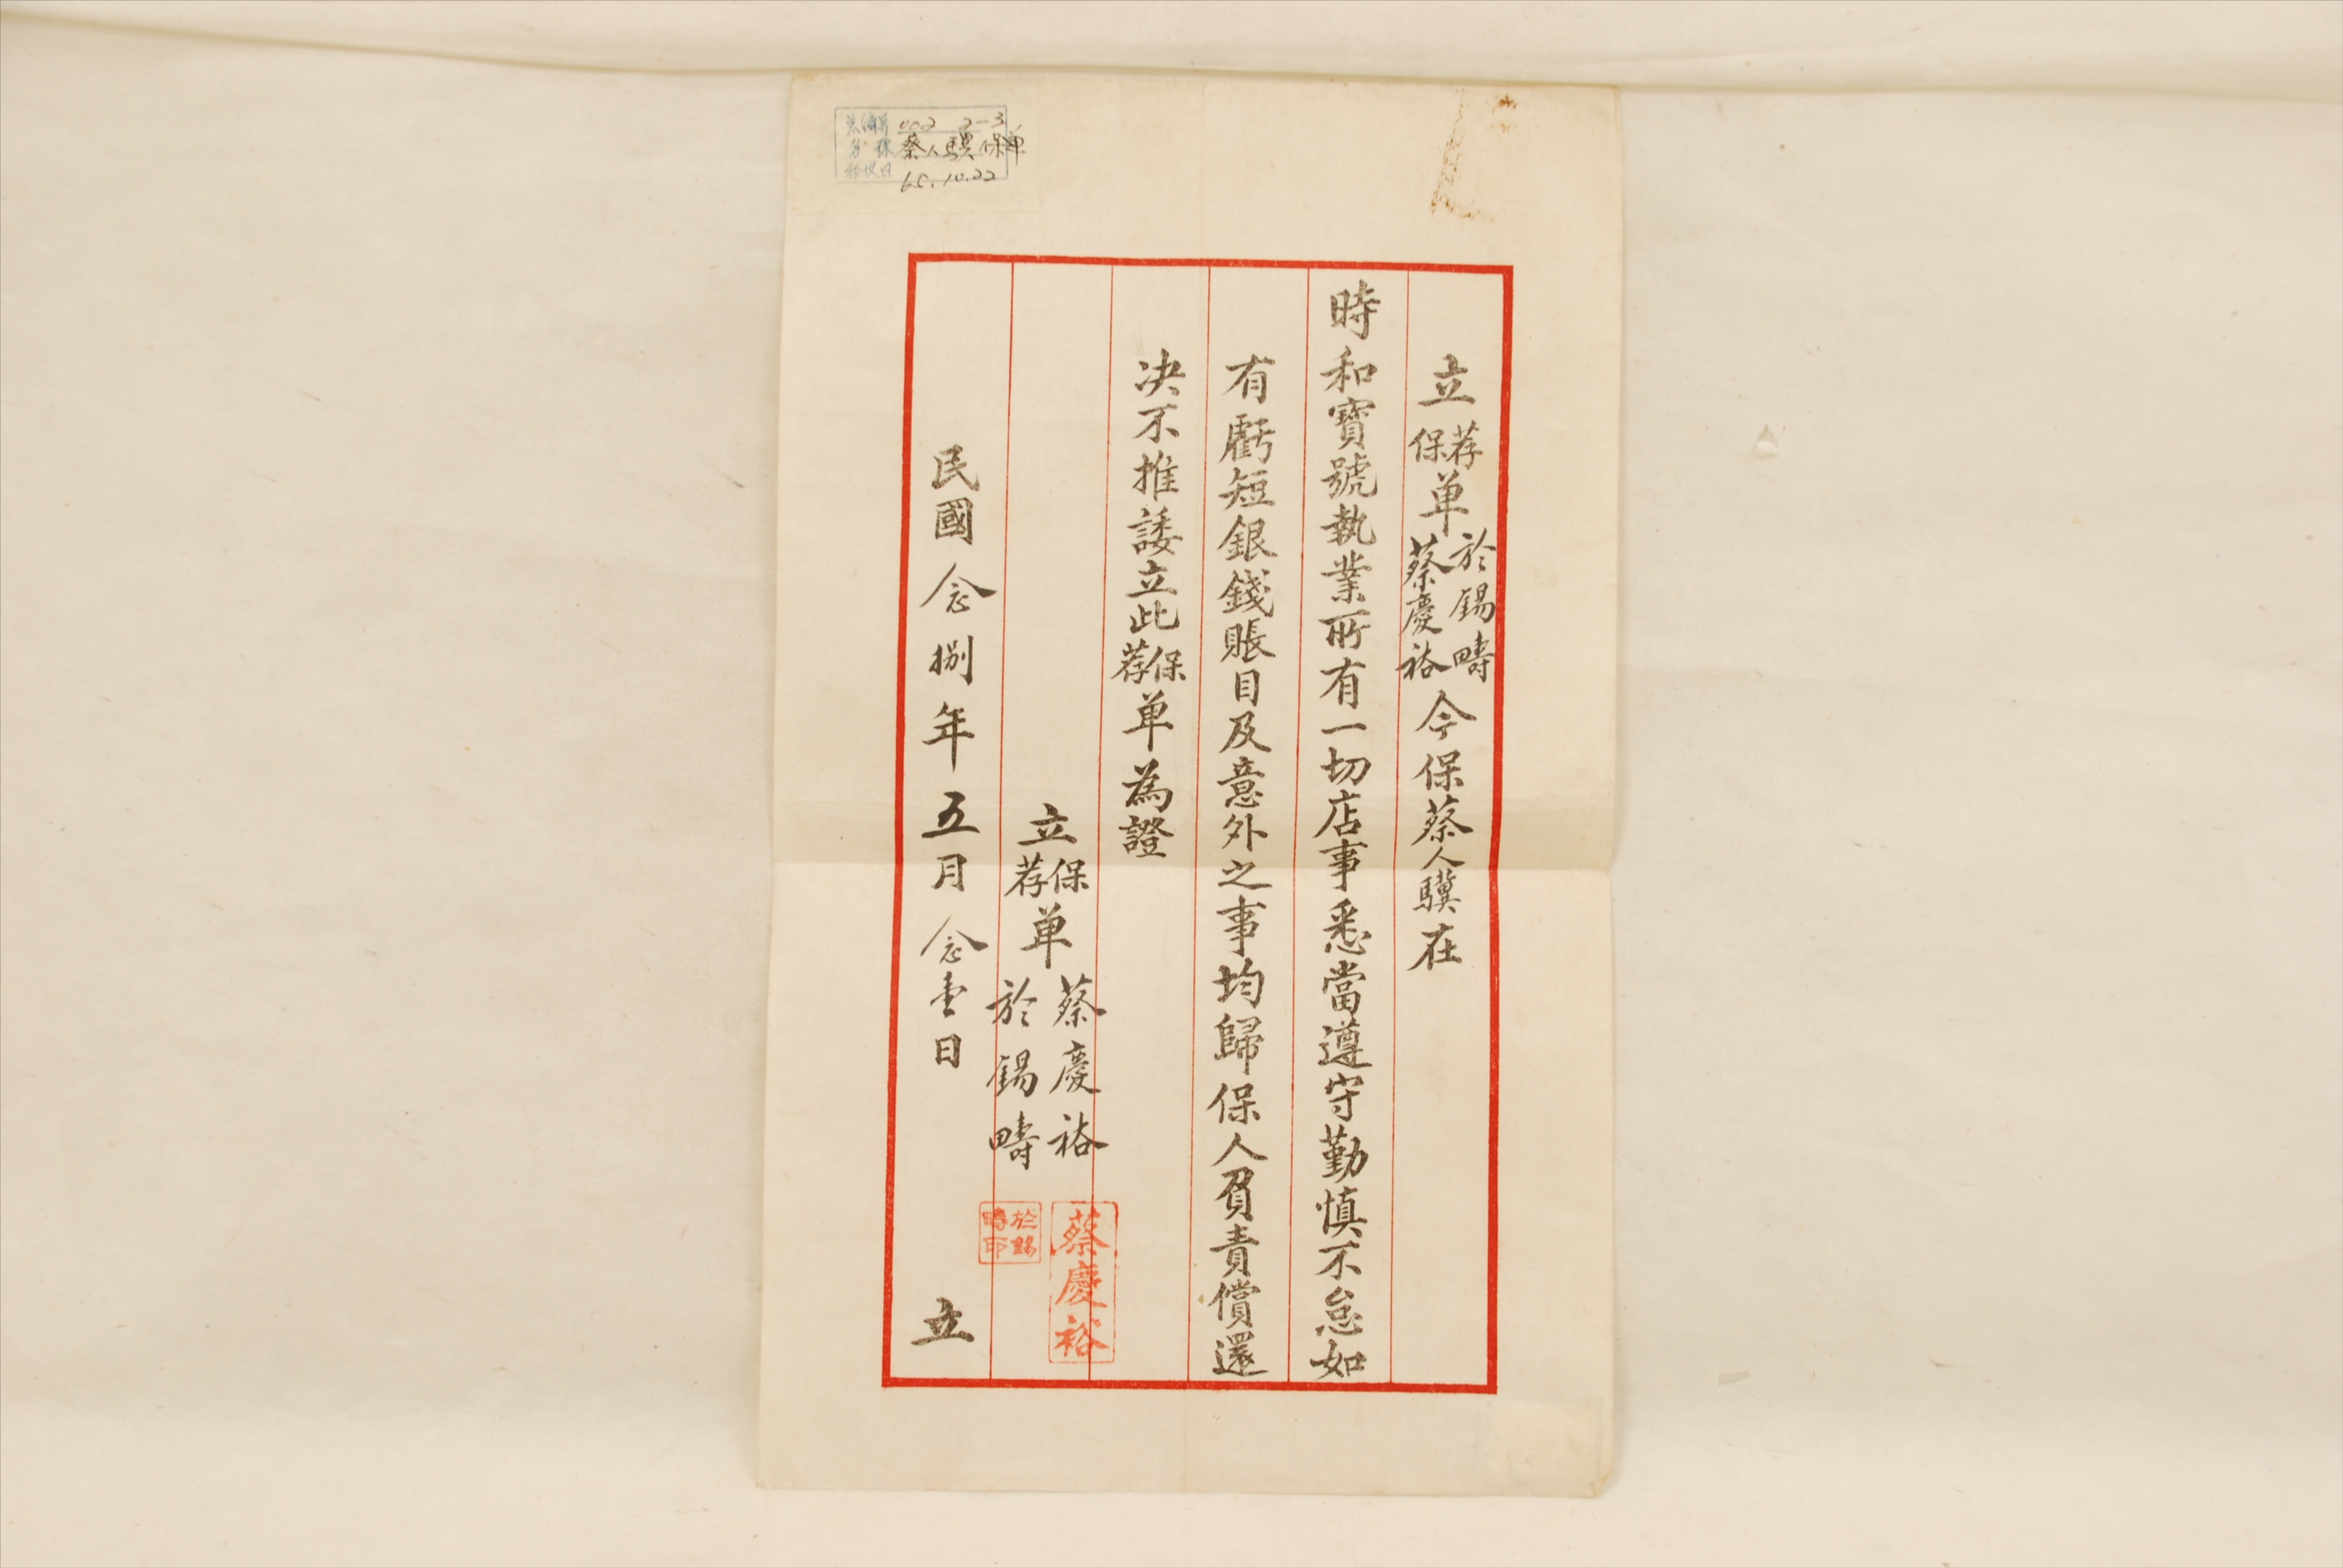 立荐保单於錫疇蔡慶裕今保蔡人驥在
時和寶號執業所有一切店事悉當遵守勤慎不怠如
有虧短銀錢賬目及意外之事均歸保人負責償還
决不推諉立此保荐单為證
立保荐单蔡慶裕
於錫疇
蔡慶裕
於錫疇印
民國念捌年五月念壹日立
002 2-3
蔡人驥保单
65.10.22